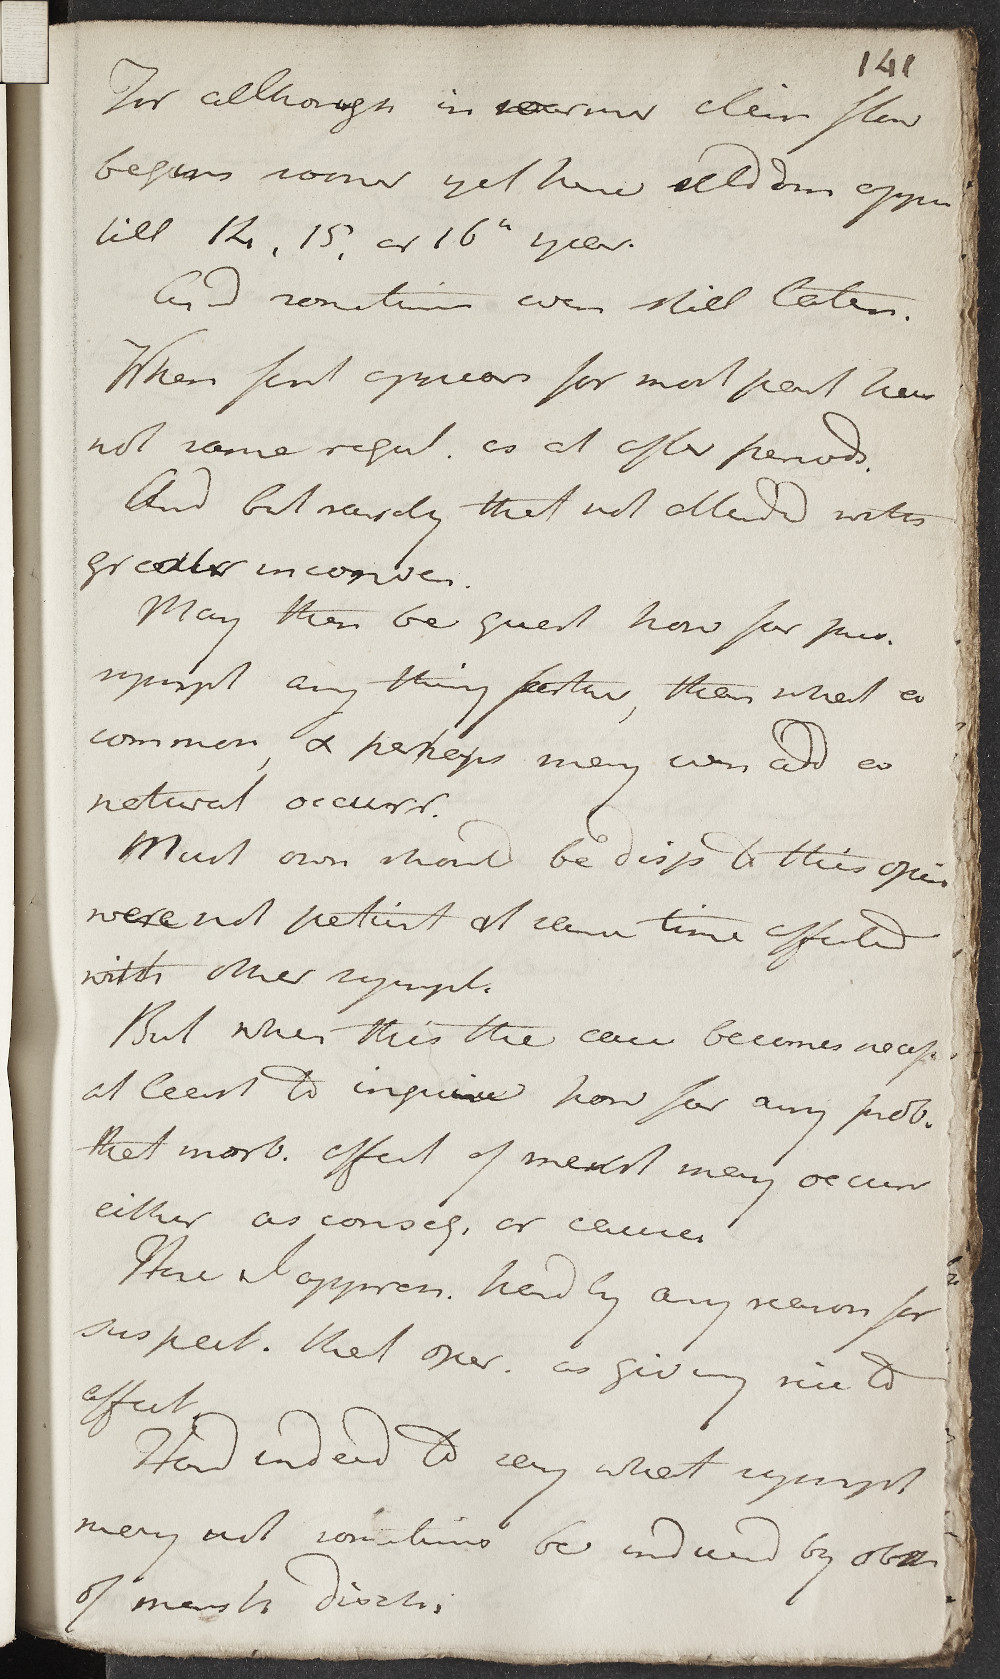 141
For although in warmer clim flow
begins sooner yet here seldom appea
till 14, 15, or 16th year.
And sometimes even still later.
When first appears for most part has
not same regul. as at after periods.
And but rarely that not attended with
greater inconven.
May then be quest how far pres.
sympt any thing farther, than what so
common, & perhaps may even add so
natural occurr.
Must own should be disp to this opin
were not patient at same time affected
with other sympt.
But when this the case becomes necess
at least to inquire how far any prob.
that morb. affect of menst may occurr
either as conseq. or cause.
Here I appreh. hardly any reason for
suspect. that oper. as giving rise to
affect.
Hard indeed to say what sympt
may not sometimes be induced by obst
of menstr disch.